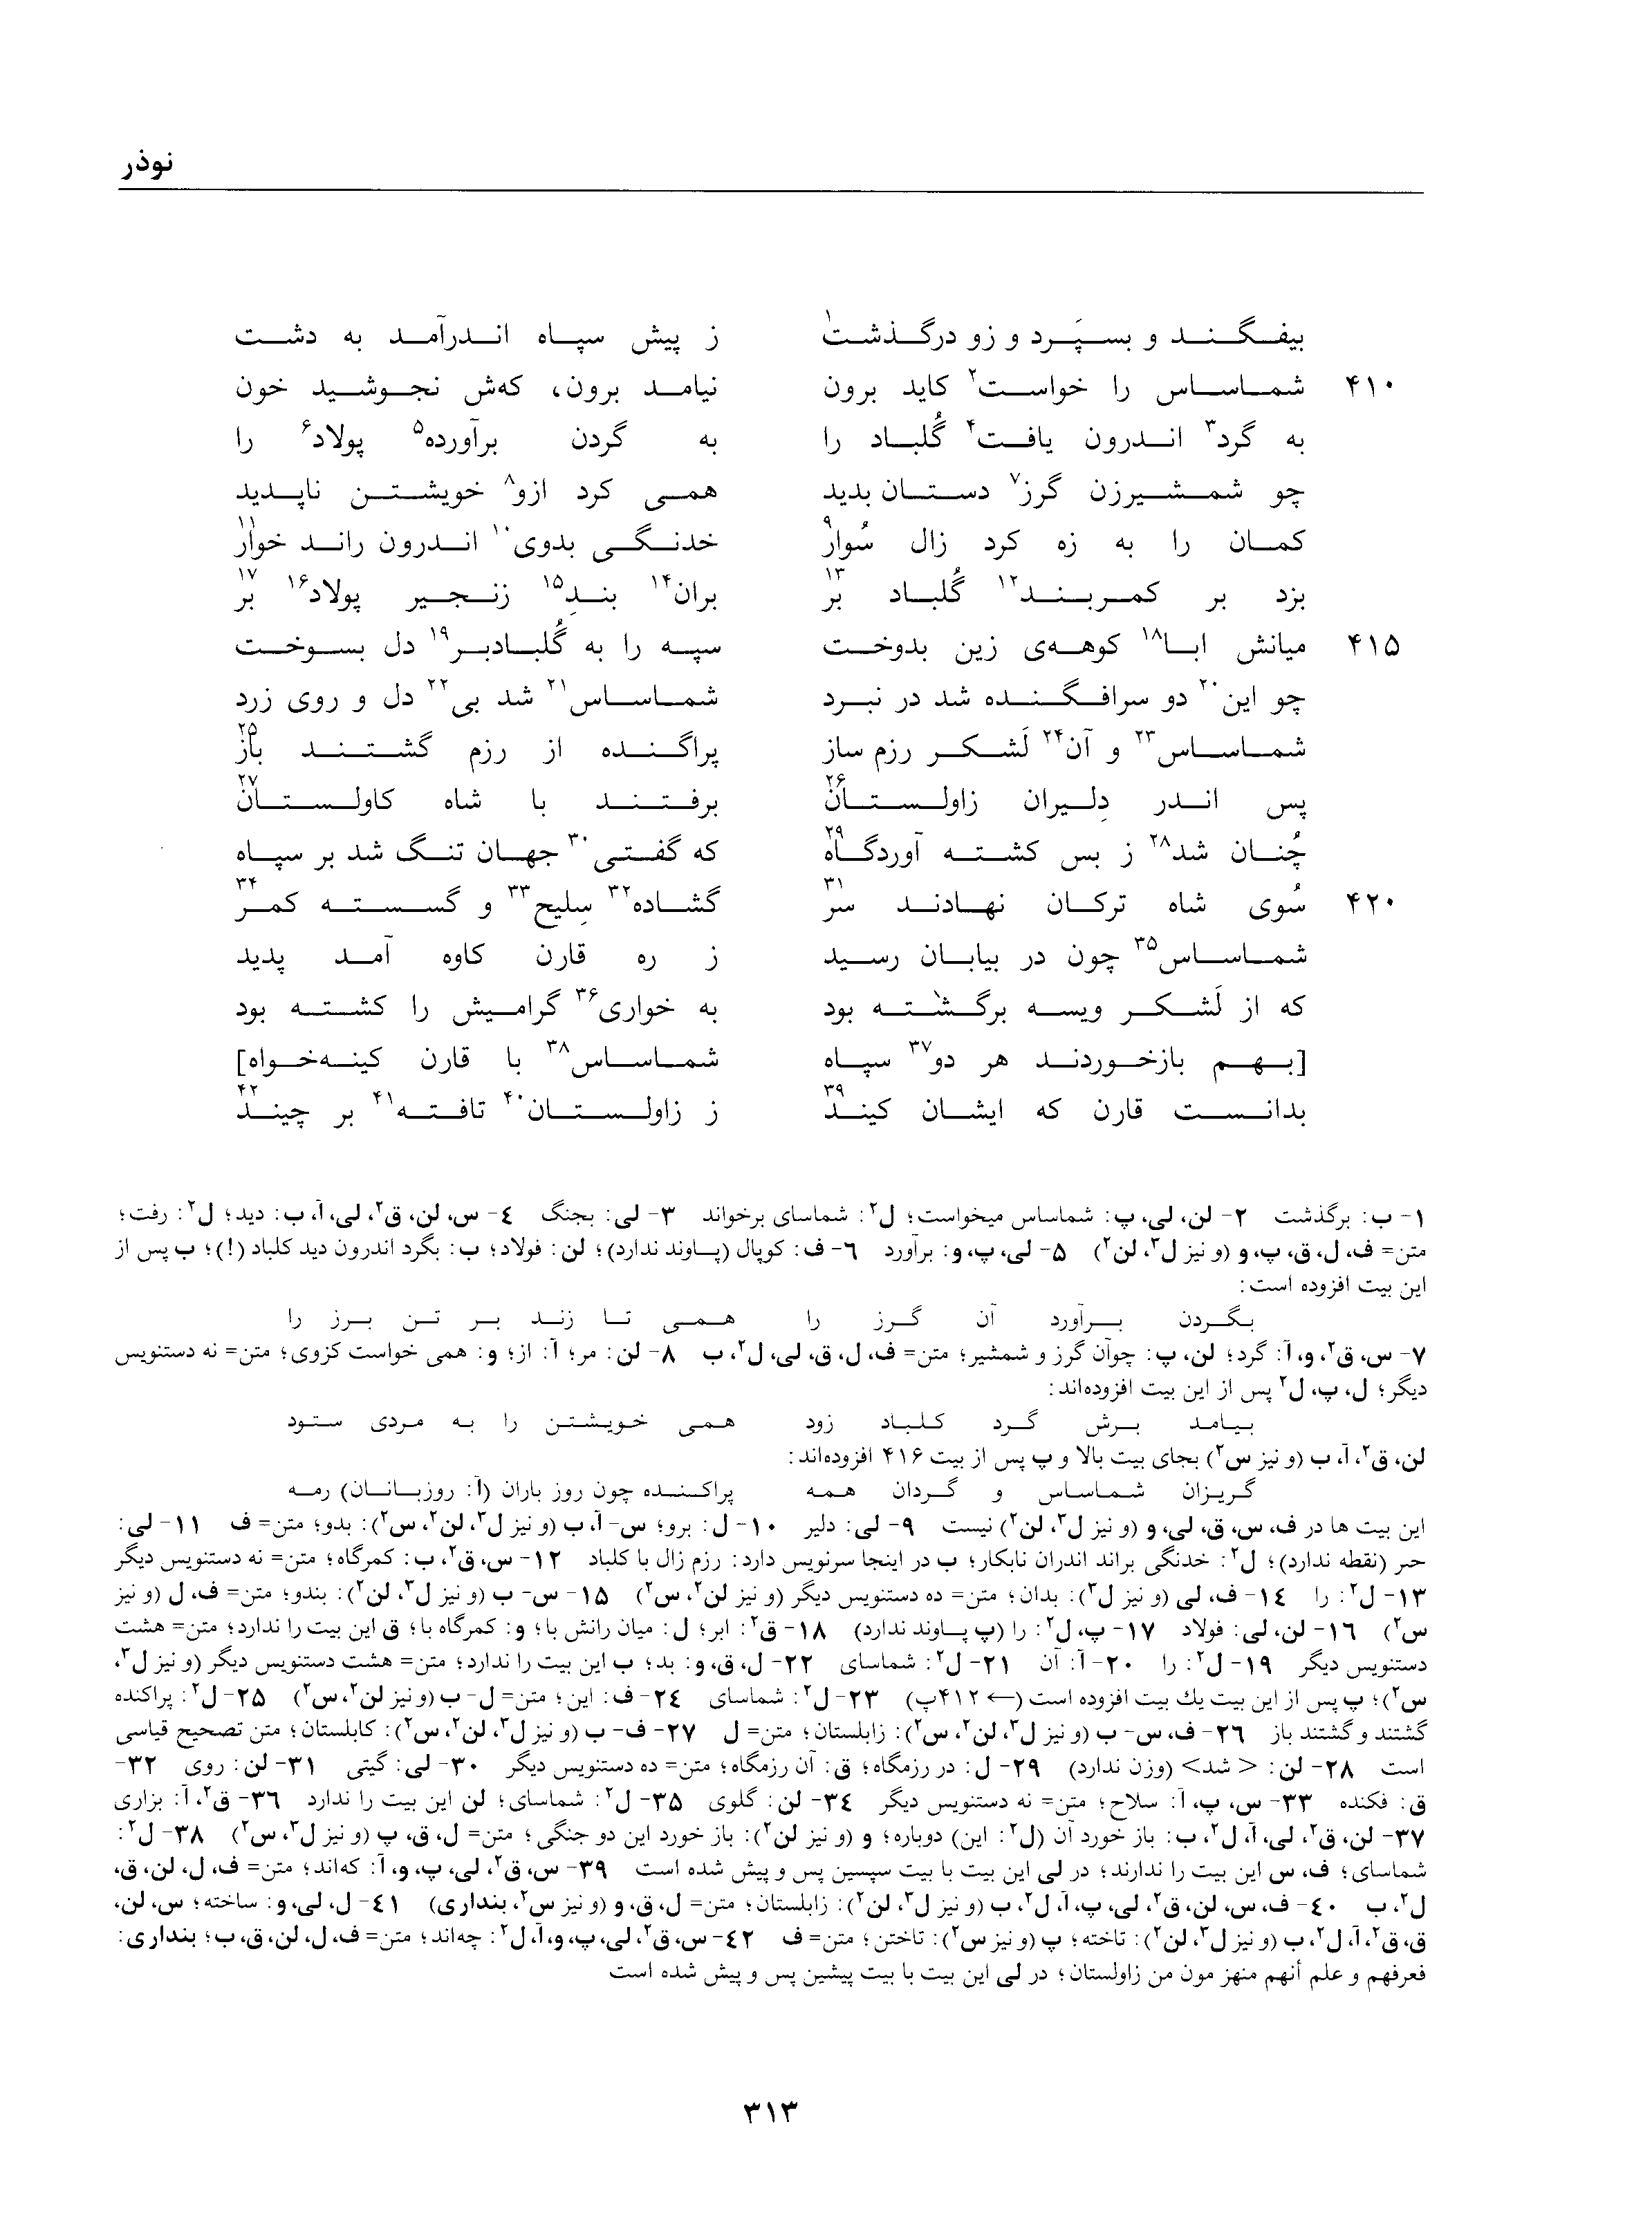 نوذر
بیفگند و بسپَرد و زو درگذشت¹ ز پیش سپاه اندرآمد به دشت
۴۱۰ شماساس را خواست² کاید برون نیامد برون، که‌ش نجوشید خون
به گرد³ اندرون یافت⁴ گُلباد را به گردن برآورده⁵ پولاد⁶ را
چو شمشیرزن گرز⁷ دستان بدید همی کرد ازو⁸ خویشتن ناپدید
کمان را به زه کرد زال سُوار⁹ خدنگی بدوی¹⁰ اندرون راند خوار¹¹
بزد بر کمربند¹² گُلباد بر¹³ بران¹⁴ بندِ¹⁵ زنجیر پولاد¹⁶ بر¹⁷
۴۱۵ میانش ابا¹⁸ کوهه‌ی زین بدوخت سپه را به گُلبادبر¹⁹ دل بسوخت
چو این²⁰ دو سرافگنده شد در نبرد شماساس²¹ شد بی²² دل و روی زرد
شماساس²³ و آن²⁴ لَشکر رزم ساز پراگنده از رزم گشتند باز²⁵
پس اندر دِلیران زاولستان²⁶ برفتند با شاه کاولستان²⁷
چُنان شد²⁸ ز بس کشته آوردگاه²⁹ که گفتی³⁰ جهان تنگ شد بر سپاه
۴۲۰ سُوی شاه ترکان نهادند سر³¹ گشاده³² سِلیح³³ و گسسته کمر³⁴
شماساس³⁵ چون در بیابان رسید ز ره قارن کاوه آمد پدید
که از لَشکر ویسه برگشته بود به خواری³⁶ گرامیش را کشته بود
[بهم بازخوردند هر دو³⁷ سپاه شماساس³⁸ با قارن کینه‌خواه]
بدانست قارن که ایشان کیند³⁹ ز زاولستان⁴⁰ تافته⁴¹ بر چیند⁴²
۱- ب: برگذشت ۲- لن، لی، پ: شماساس میخواست؛ ل²: شماسای برخواند ۳- لی: بجنگ ٤- س، لن، ق²، لی، آ، ب: دید؛ ل²: رفت؛
متن= ف، ل، ق، پ، و (و نیز ل³، لن²) ۵- لی، پ، و: برآورد ٦- ف: کوپال (پساوند ندارد)؛ لن: فولاد؛ ب: بگرد اندرون دید کلباد (!)؛ ب پس از
این بیت افزوده است:
بگردن برآورد آن گرز را همی تا زند بر تن برز را
۷- س، ق²، و، آ: گرد؛ لن، پ: چوآن گرز و شمشیر؛ متن= ف، ل، ق، لی، ل²، ب ۸- لن: مر؛ آ: از؛ و: همی خواست کزوی؛ متن= نه دستنویس
دیگر؛ ل، پ، ل² پس از این بیت افزوده‌اند:
بیامد برش گرد کلباد زود همی خویشتن را به مردی ستود
لن، ق²، آ، ب (و نیز س²) بجای بیت بالا و پ پس از بیت ۴۱۶ افزوده‌اند:
گریزان شماساس و گردان همه پراکنده چون روز باران (آ: روزبانان) رمه
این بیت ها در ف، س، ق، لی، و (و نیز ل³، لن²) نیست ۹- لی: دلیر ۱۰- ل: برو؛ س- آ، ب (و نیز ل³، لن²، س²): بدو؛ متن= ف ۱۱- لی:
حر (نقطه ندارد)؛ ل²: خدنگی براند اندران نابکار؛ ب در اینجا سرنویس دارد: رزم زال با کلباد ۱۲- س، ق²، ب: کمرگاه؛ متن= نه دستنویس دیگر
۱۳- ل²: را ۱٤- ف، لی (و نیز ل³): بدان؛ متن= ده دستنویس دیگر (و نیز لن²، س²) ۱۵- س- ب (و نیز ل³، لن²): بندو؛ متن= ف، ل (و نیز
س²) ۱٦- لن، لی: فولاد ۱۷- پ، ل²: را (پ پساوند ندارد) ۱۸- ق²: ابر؛ ل: میان رانش با؛ و: کمرگاه با؛ ق این بیت را ندارد؛ متن= هشت
دستنویس دیگر ۱۹- ل²: را ۲۰- آ: آن ۲۱- ل²: شماسای ۲۲- ل، ق، و: بد؛ ب این بیت را ندارد؛ متن= هشت دستنویس دیگر (و نیز ل³،
س²)؛ پ پس از این بیت یك بیت افزوده است (← ۴۱۲پ) ۲۳- ل²: شماسای ۲٤- ف: این؛ متن= ل- ب (و نیز لن²، س²) ۲۵- ل²: پراکنده
گشتند و گشتند باز ۲٦- ف، س- ب (و نیز ل³، لن²، س²): زابلستان؛ متن= ل ۲۷- ف- ب (و نیز ل³، لن²، س²): کابلستان؛ متن تصحیح قیاسی
است ۲۸- لن: < شد> (وزن ندارد) ۲۹- ل: در رزمگاه؛ ق: آن رزمگاه؛ متن= ده دستنویس دیگر ۳۰- لی: گیتی ۳۱- لن: روی ۳۲-
ق: فکنده ۳۳- س، پ، آ: سلاح؛ متن= نه دستنویس دیگر ۳٤- لن: گلوی ۳۵- ل²: شماسای؛ لن این بیت را ندارد ۳٦- ق²، آ: بزاری
۳۷- لن، ق²، لی، آ، ل²، ب: باز خورد آن (ل²: این) دوباره؛ و (و نیز لن²): باز خورد این دو جنگی؛ متن= ل، ق، پ (و نیز ل³، س²) ۳۸- ل²:
شماسای؛ ف، س این بیت را ندارند؛ در لی این بیت با بیت سپسین پس و پیش شده است ۳۹- س، ق²، لی، پ، و، آ: که‌اند؛ متن= ف، ل، لن، ق،
ل²، ب ٤۰- ف، س، لن، ق²، لی، پ، آ، ل²، ب (و نیز ل³، لن²): زابلستان؛ متن= ل، ق، و (و نیز س²، بنداری) ٤۱- ل، لی، و: ساخته؛ س، لن،
ق، ق²، آ، ل²، ب (و نیز ل³، لن²): تاخته؛ پ (و نیز س²): تاختن؛ متن= ف ٤۲- س، ق²، لی، پ، و، آ، ل²: چه‌اند؛ متن= ف، ل، لن، ق، ب؛ بنداری:
فعرفهم و علم أنهم منهز مون من زاولستان؛ در لی این بیت با بیت پیشین پس و پیش شده است
۳۱۳